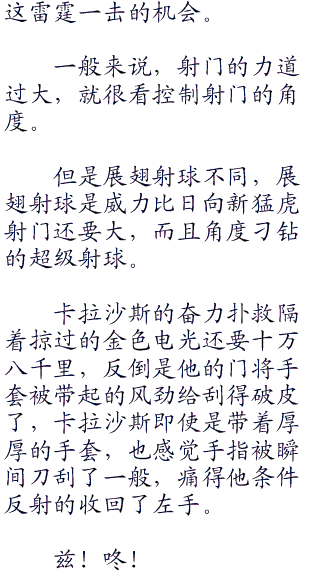 这雷霆一击的机会。
一般来说，射门的力道
过大，就很看控制射门的角
度。
但是展翅射球不同，展
翅射球是威力比日向新猛虎
射门还要大，而且角度刁钻
的超级射球。
卡拉沙斯的奋力扑救隔
着掠过的金色电光还要十万
八千里，反倒是他的门将手
套被带起的风劲给刮得破皮
了，卡拉沙斯即使是带着厚
厚的手套，也感觉手指被瞬
间刀刮了一般，痛得他条件
反射的收回了左手。
兹！咚！